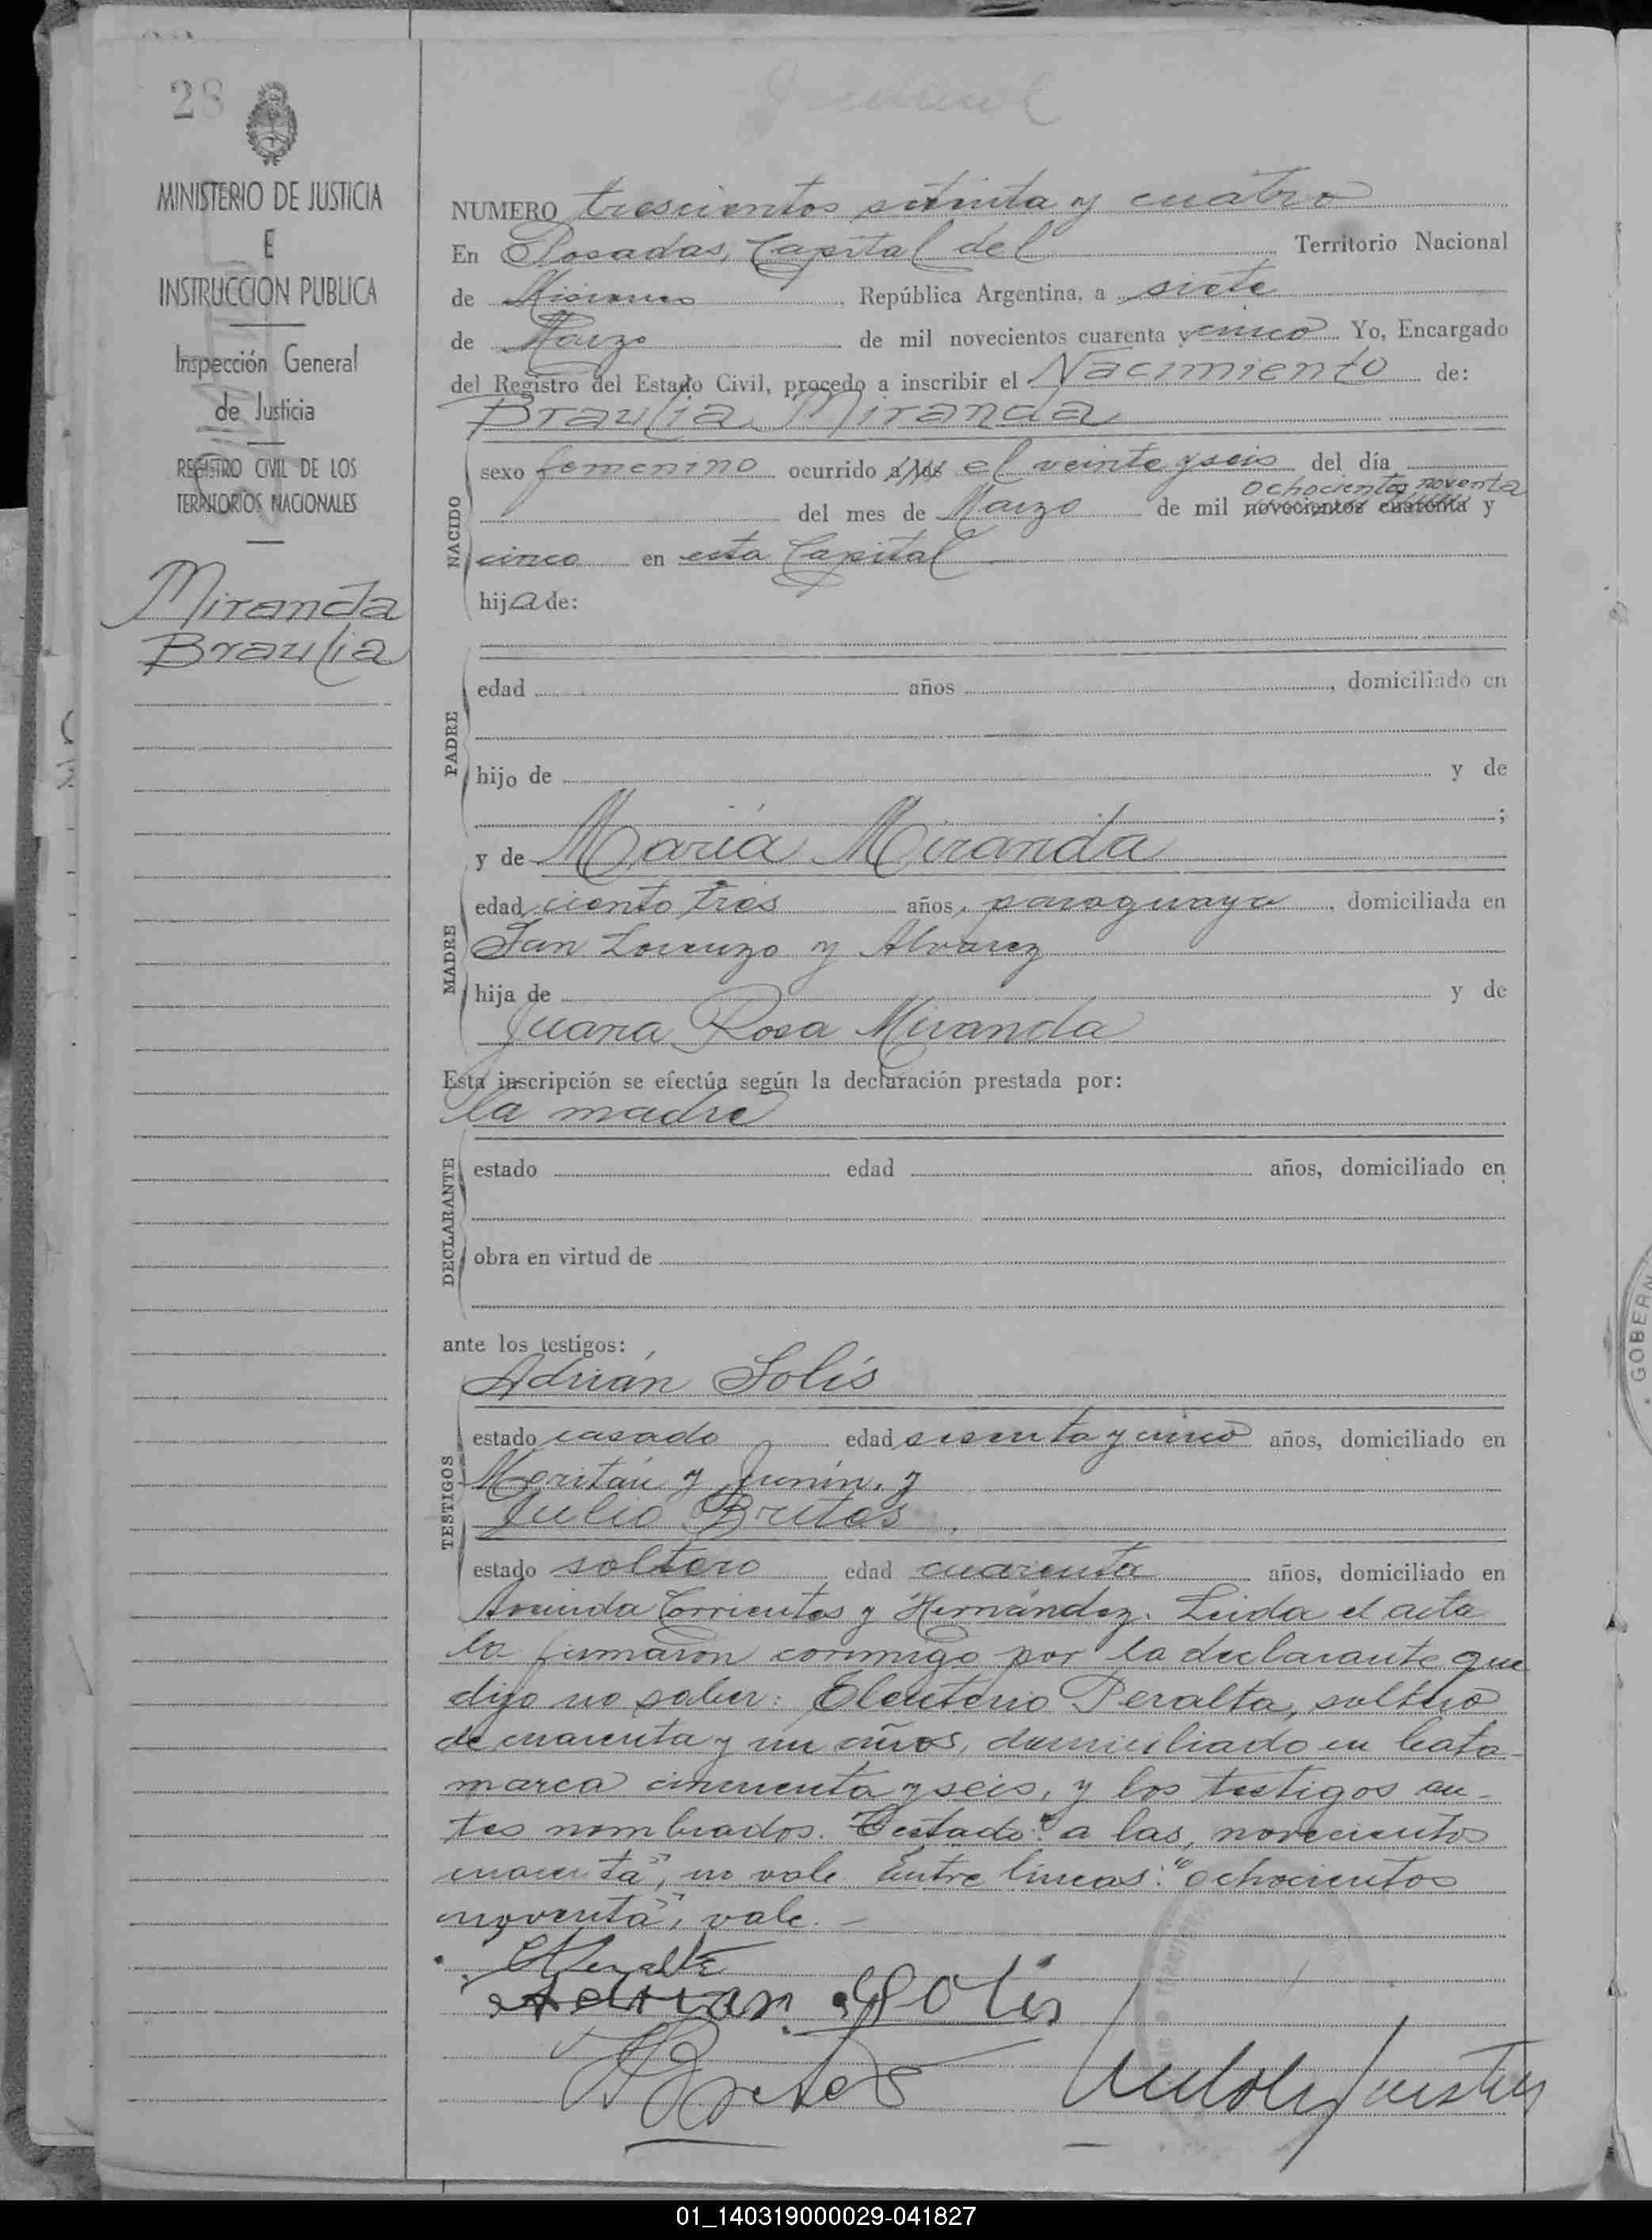 28
MINISTERIO DE JUSTICIA
E
INSTRUCCION PUBLICA
Inspección General
de Justicia
REGISTRO CIVIL DE LOS
TERRITORIOS NACIONALES
Miranda
Braulia
NUMERO trescientos setenta y cuatro
En Posadas, Capital del Territorio Nacional
de Misiones, República Argentina, a siete
de Marzo de mil novecientos cuarenta y cinco Yo, Encargado
del Registro del Estado Civil, procedo a inscribir el Nacimiento de:
Braulia Miranda
NACIDO
sexo femenino ocurrido a las el veinte y seis del día
ochocientos noventa
del mes de Marzo de mil novecientos cuarenta y
cinco en esta Capital
hija de:
PADRE
edad años , domiciliado en
hijo de y de
;
MADRE
y de María Miranda
edad ciento tres años, paraguaya, domiciliada en
San Lorenzo y Alvarez
hija de y de
Juana Rosa Miranda
Esta inscripción se efectúa según la declaración prestada por:
la madre
DECLARANTE
estado edad años, domiciliado en
obra en virtud de
ante los testigos:
Adrián Solís
TESTIGOS
estado casado edad sesenta y cinco años, domiciliado en
y Junín, y
Julio Britos
estado soltero edad cuarenta años, domiciliado en
Avenida Corrientes y Hernández. Leida el acta
la firmaron conmigo por la declarante que
dijo no saber: Eleuterio Peralta, soltero
de cuarenta y un años, domiciliado en Cata-
marca cincuenta y seis, y los testigos an-
tes nombrados. Testado: "a las, novecientos
cuarenta", no vale. Entre líneas: "ochocientos
noventa", vale.-
EPeralta
Adrian Solis
JBritos
GOBERN
01_140319000029-041827